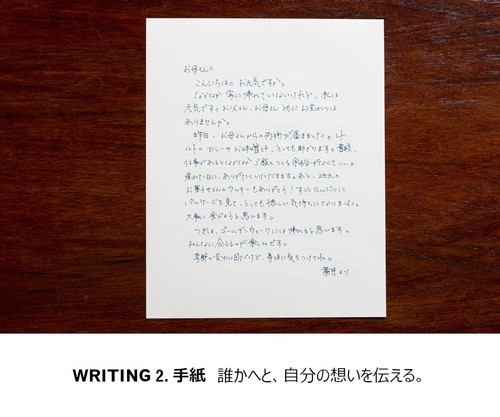 お母さんへ
こんにちは。お元気ですか。
なかなか家に帰れていないけれど、私は
元気です。お父さん、お母さん ともにお変わりは
ありませんか。
昨日、お母さんからの荷物が届きました。レト
ルトのカレーやお味噌汁、とっても助かります。普段、
仕事があるとなかなかご飯をつくる余裕がなくて…。
疲れた日に、ありがたくいただきます。あと、地元の
お菓子屋さんのクッキーもありがとう!すごく久しぶりに
パッケージを見て、とっても懐しい気持ちになりました。
大切に食べようと思います。
つぎは、ゴールデンウィークには帰れると思います。
みんなに会えるのが楽しみです。
季節の変わり目だけど、身体に気をつけてね。
葉月より
WRITING 2. 手紙 誰かへと、自分の想いを伝える。